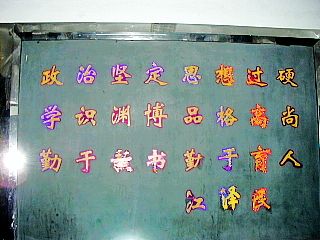 政治坚定思想过硬
学识渊博品格高尚
勤于教书勤于育人
江泽民